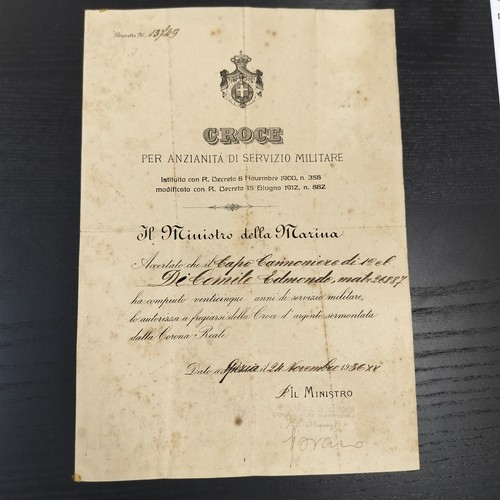 Brevetto N. 13749
CROCE
PER ANZIANITÀ DI SERVIZIO MILITARE
Istituita con R. Decreto 8 Novembre 1900, n. 358
modificato con R. Decreto 15 Giugno 1912, n. 882
Il Ministro della Marina
Accertato che il Capo Cannoniere di 1ª cl.
Di Comite Edmondo, matr. 26887
ha compiuto venticinque anni di servizio militare,
lo autorizza a fregiarsi della Croce d'argento sormontata
dalla Corona Reale.
Dato a Spezia il 24 Novembre 1936 XV
p. IL MINISTRO